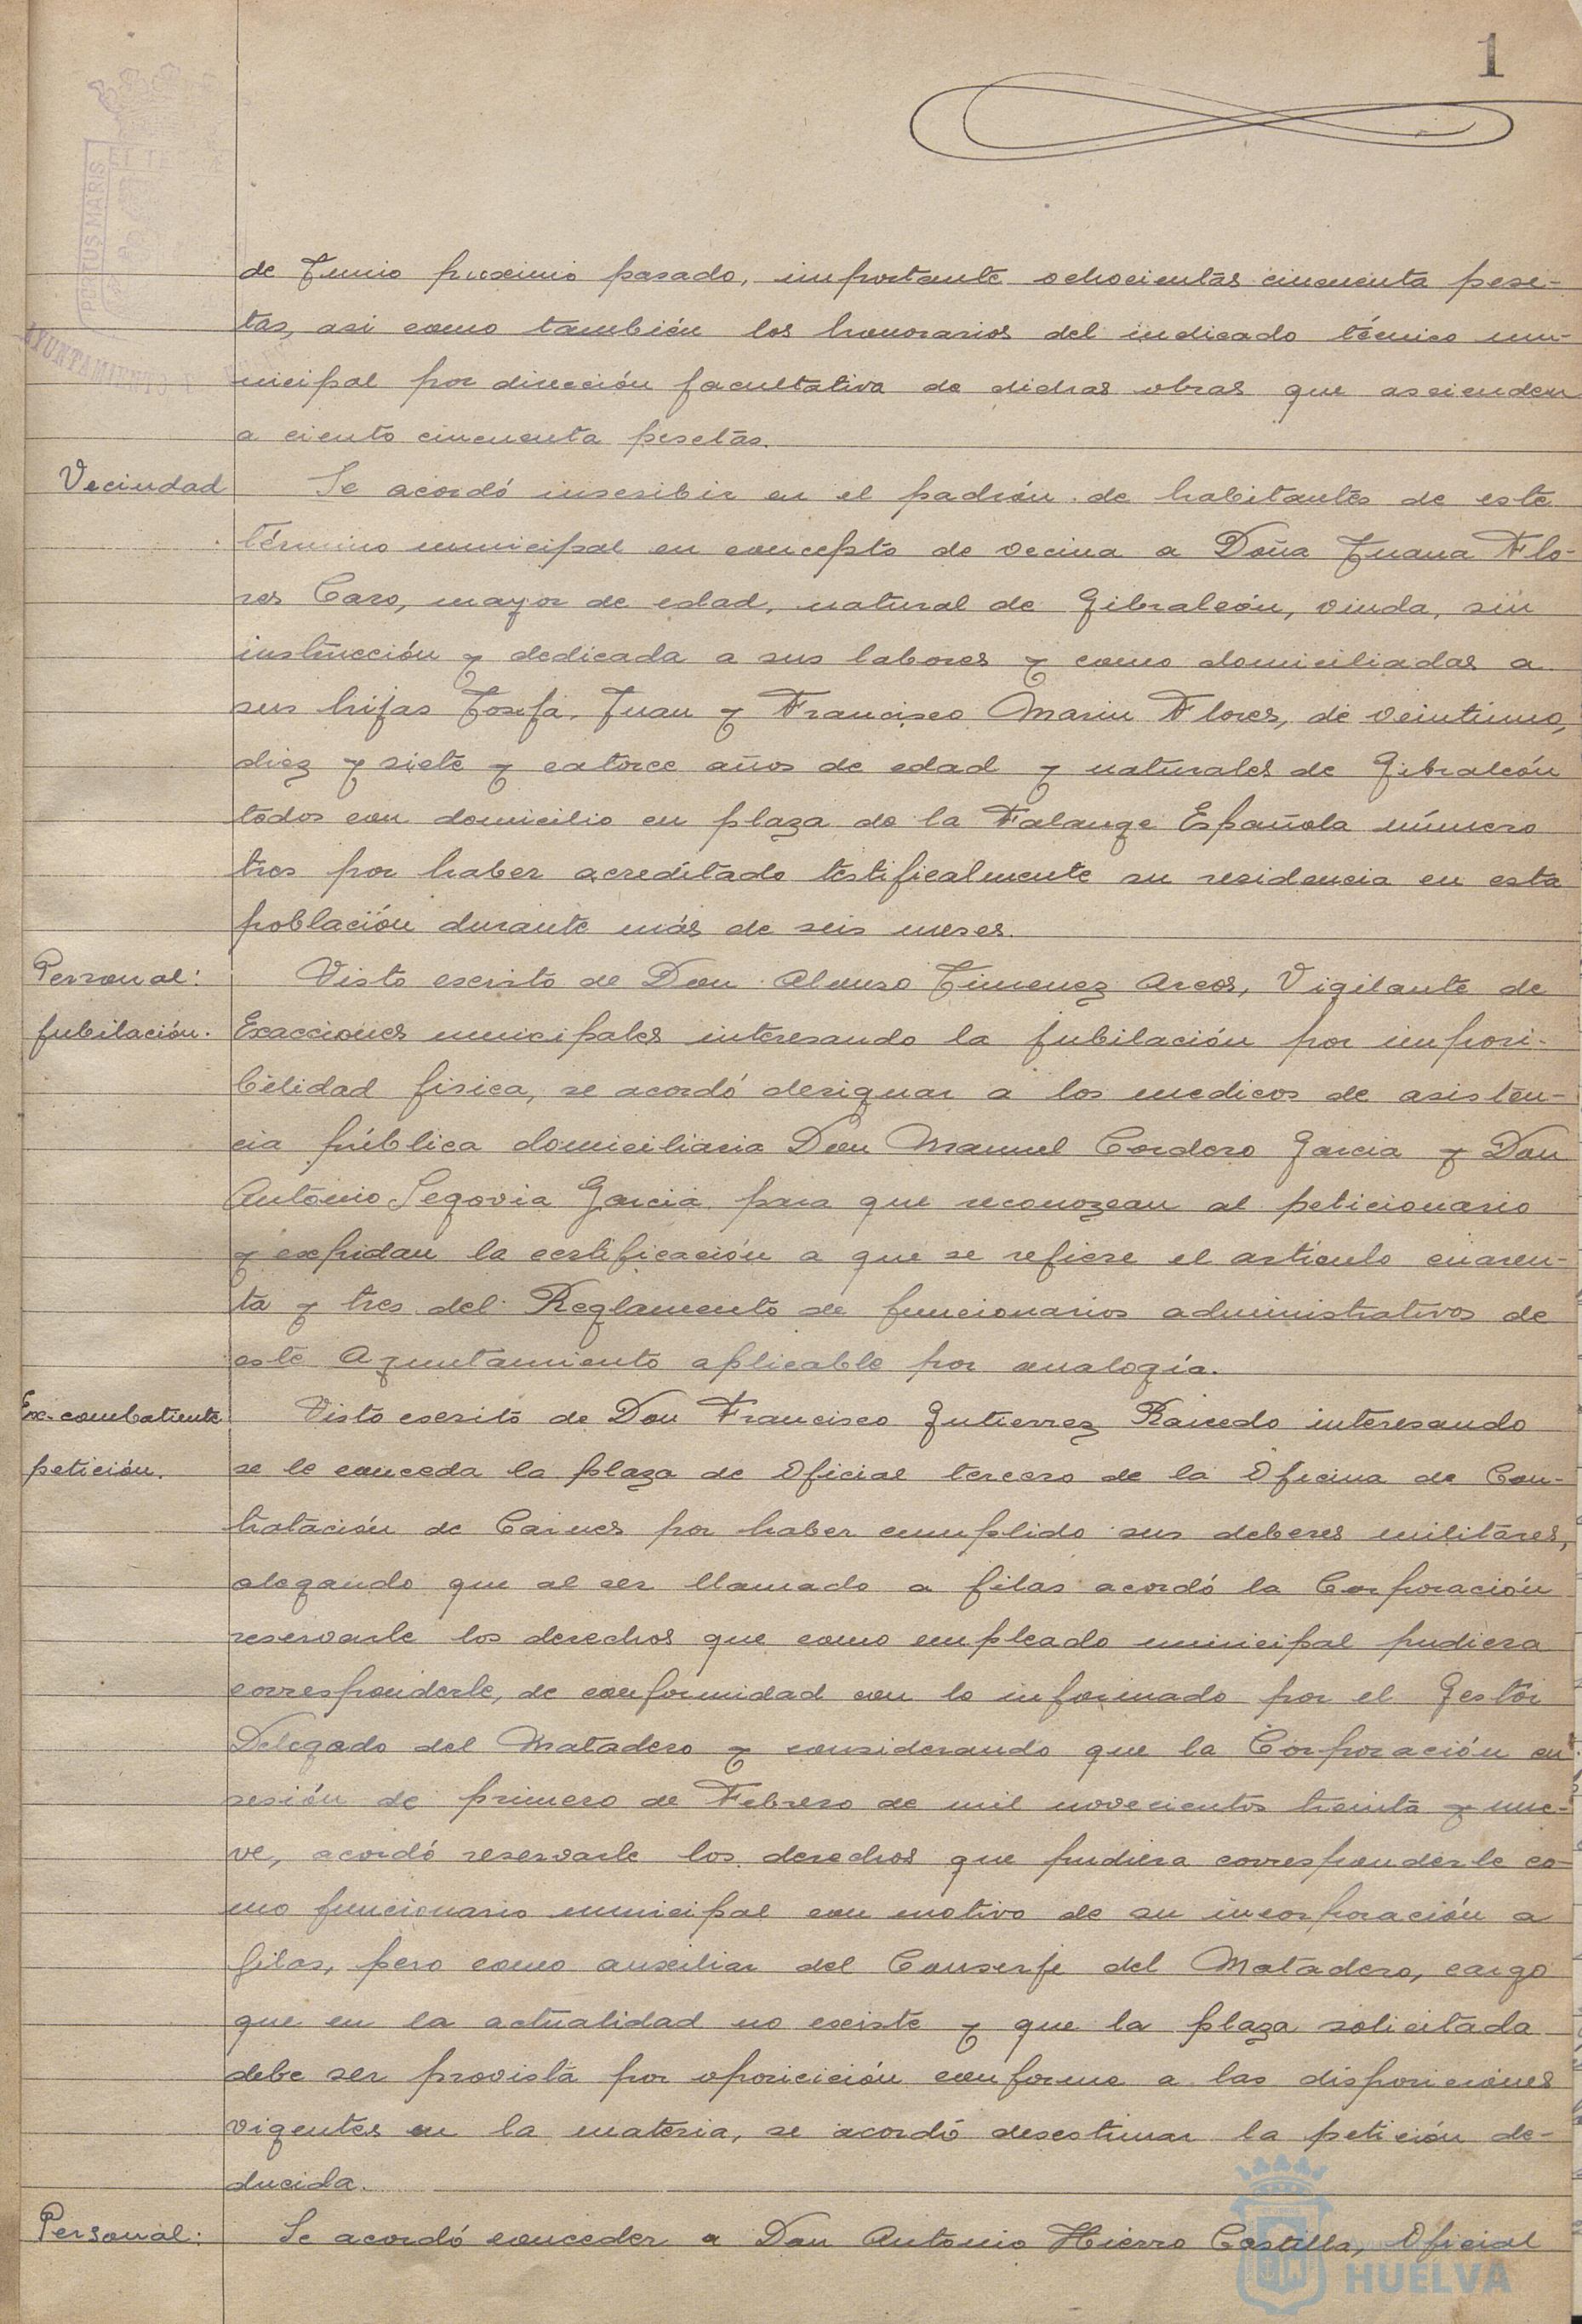 1
PORTUS MARIS
ET TE
AYUNTAMIENTO
de Junio proximo pasado, importante ochocientas cincuenta pese-
tas, asi como también los honorarios del indicado técnico mu-
nicipal por dirección facultativa de dichas obras que ascienden
a ciento cincuenta pesetas.
Vecindad
Se acordó inscribir en el padrón de habitantes de este
término municipal en concepto de vecina a Doña Juana Flo-
res Caro, mayor de edad, natural de Gibraleón, viuda, sin
instrucción y dedicada a sus labores y como domiciliadas a
sus hijas Josefa, Juan y Francisco Marin Flores, de veintiuno,
diez y siete y catorce años de edad y naturales de Gibraleón
todos con domicilio en plaza de la Falange Española número
tres por haber acreditado testificalmente su residencia en esta
población durante más de seis meses.
Personal:
jubilación.
Visto escrito de Don Alonso Jimenez Arcos, Vigilante de
Exacciones municipales interesando la jubilación por imposi-
bilidad fisica, se acordó designar a los medicos de asisten-
cia pública domiciliaria Don Manuel Cordero Garcia y Don
Antonio Segovia Garcia para que reconozcan al peticionario
y expidan la certificación a que se refiere el artículo cuaren-
ta y tres del Reglamento de funcionarios administrativos de
este Ayuntamiento aplicable por analogía.
Ex-combatiente
petición.
Visto escrito de Don Francisco Gutierrez Raicedo interesando
se le conceda la plaza de Oficial tercero de la Oficina de Con-
tratación de Carnes por haber cumplido sus deberes militares,
alegando que al ser llamado a filas acordó la Corporación
reservarle los derechos que como empleado municipal pudiera
corresponderle, de conformidad con lo informado por el Gestor
Delegado del Matadero y considerando que la Corporación en
sesión de primero de Febrero de mil novecientos treinta y nue-
ve, acordó reservarle los derechos que pudiera corresponderle co-
mo funcionario municipal con motivo de su incorporación a
filas, pero como auxiliar del Conserje del Matadero, cargo
que en la actualidad no existe y que la plaza solicitada
debe ser provista por oposicición conforme a las disposiciones
vigentes en la materia, se acordó desestimar la petición de-
ducida.
Personal:
Se acordó conceder a Don Antonio Hierro Castilla, Oficial
HUELVA